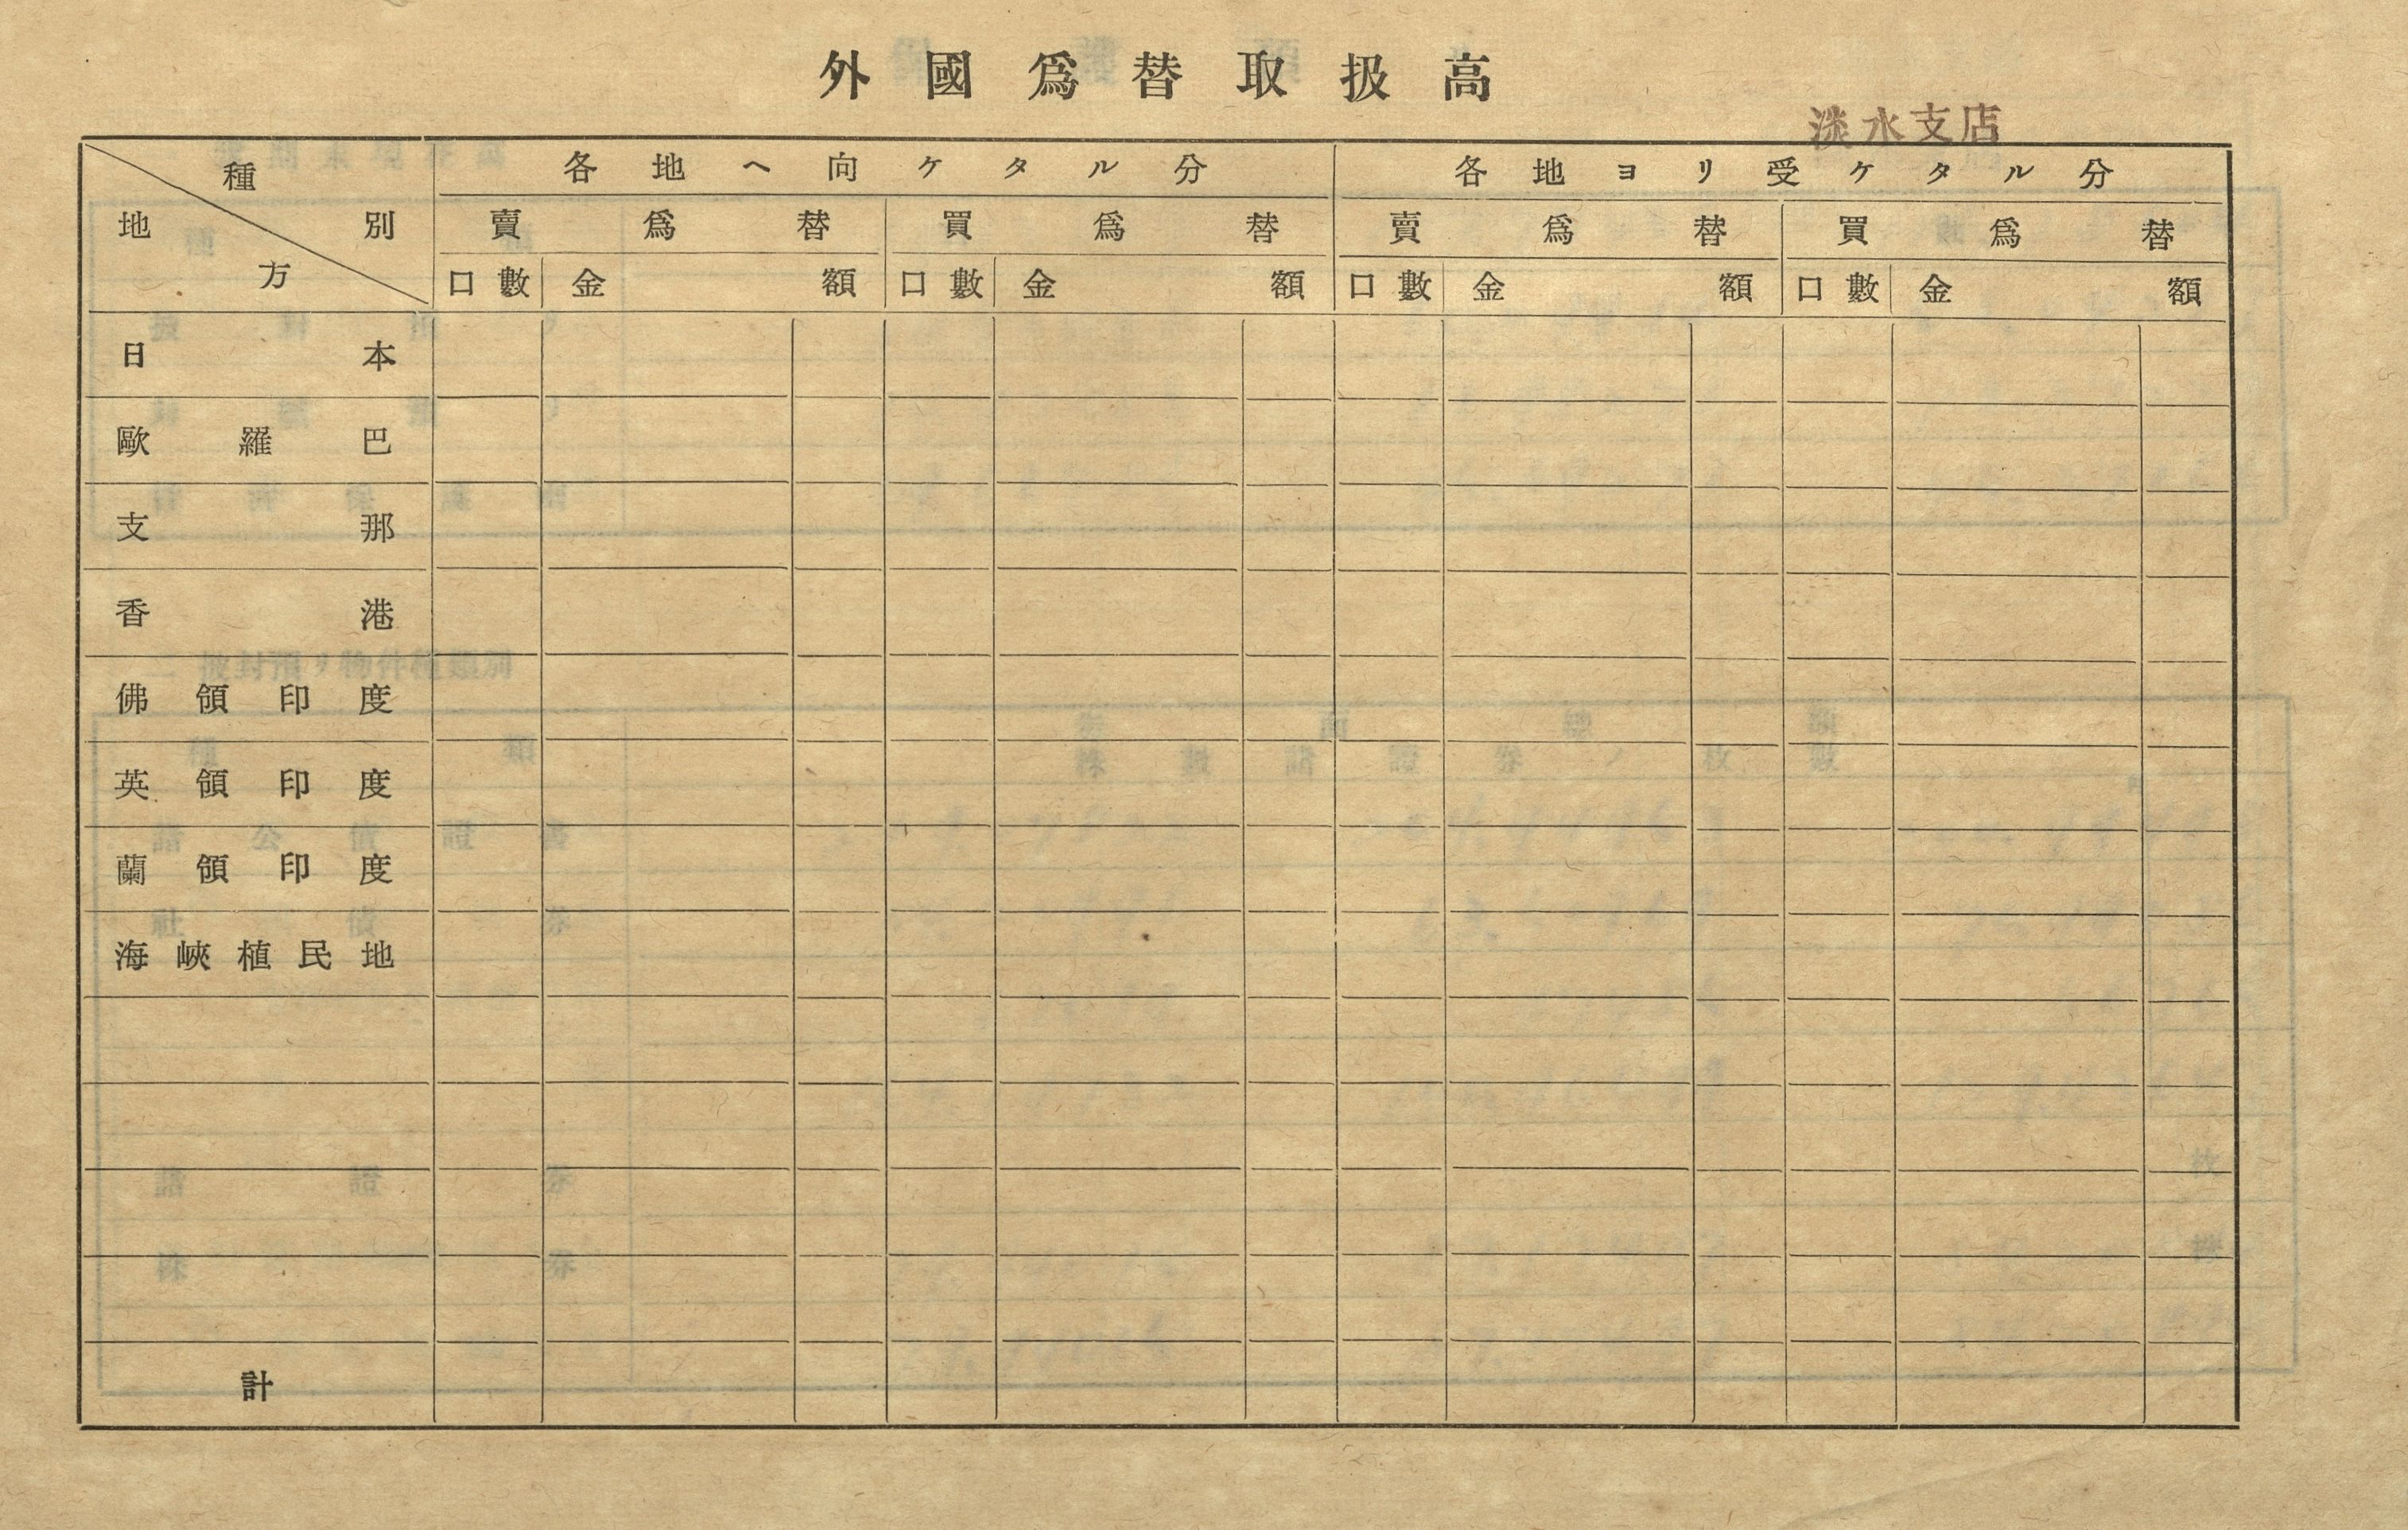 外國爲替取扱高
淡水支店
種別
地方
各地ヘ向ケタル分
各地ヨリ受ケタル分
賣爲替 買爲替 賣爲替 買爲替
口數 金額 口數 金額 口數 金額 口數 金額
日本
歐羅巴
支那
香港
佛領印度
英領印度
蘭領印度
海峽植民地
計